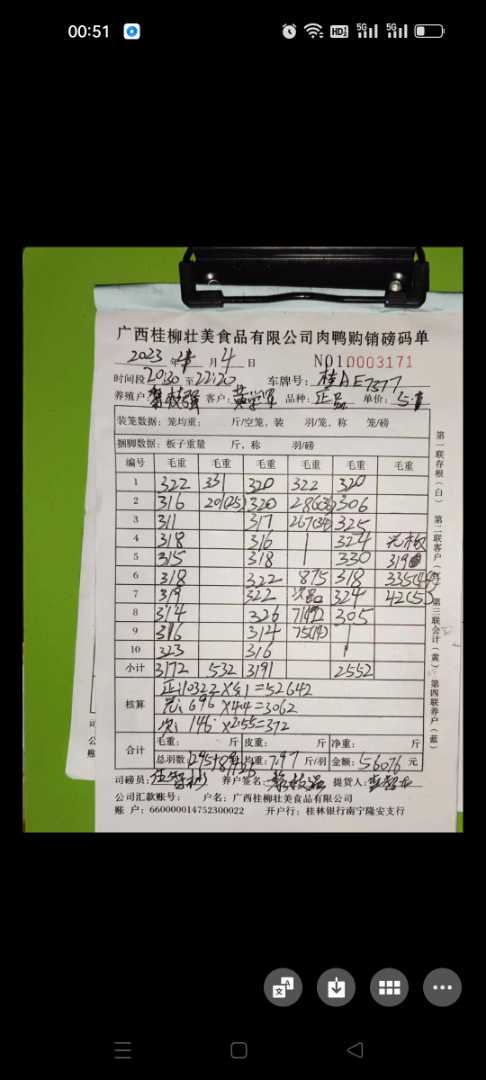 00:51
HD 5G 5G
广西桂柳壮美食品有限公司肉鸭购销磅码单
2023 年 月 4 日 NO10003171
时间段 20:30 至 22:20 车牌号: 桂AE7377
养殖户 客户: 品种: 正品 单价: 5.1
装笼数据: 笼均重: 斤/空笼, 装 羽/笼, 称 笼/磅
捆脚数据: 板子重量 斤, 称 羽/磅
编号 毛重 毛重 毛重 毛重 毛重 毛重
1 322 331 320 322 320
2 316 201(25) 320 306
3 311 317 267(34) 325
4 318 316 324
5 315 318 330 319
6 318 322 875 318
7 319 322 324
8 314 326 305
9 316 314
10 323 316
小计 3172 532 3191 2552
核算 正:10322×5.1=52642
696×4.4=3062
146×2.55=372
合计 毛重: 斤 皮重: 斤 净重: 斤
总羽数 均重: 7.97 斤/羽 金额: 56076 元
司磅员: 养户签名: 提货人:
公司汇款账号: 户名: 广西桂柳壮美食品有限公司
账户: 660000014752300022 开户行: 桂林银行南宁隆安支行
第一联存根(白) 第二联客户 第三联会计(黄) 第四联养户(蓝)